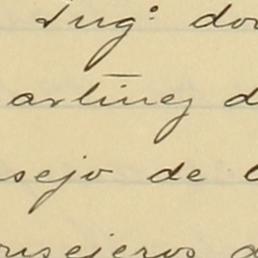 Ing: do
artinez d
sejo de
nsejeros d